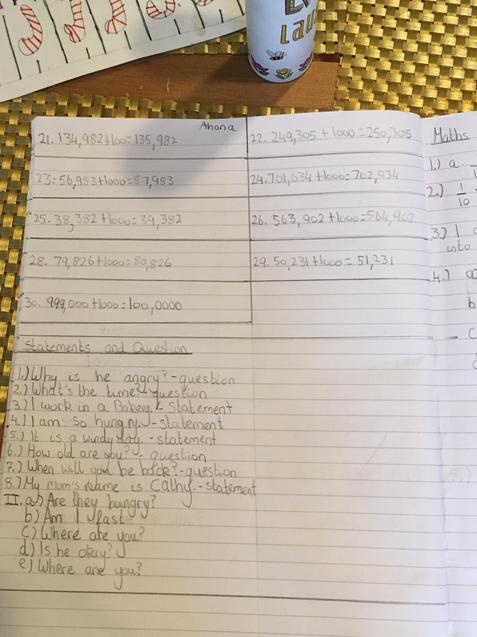 Lau
Ahana
21. 134,982+1000=135,982
22. 249,305 + 1000 = 250,305
23. 56,983+1000=57,983
24. 701,034+1000=702,034
25. 38,382 +1000= 39,382
26. 563,902 +1000=564,902
28. 79,826+1000=80,826
29. 50,231+1000 = 51,231
30. 999,000+1000=100,0000
Statements and Question
1.) Why is he angry?-question
2.) What's the time?-question
3.) I work in a Bakery.- Statement
4.) I am so hungry.-statement
5.) It is a windy day.-statement
6.) How old are you?- question
7.) When will you be back?-question
8.) My mum's name is Cathy.-statement
II. a.) Are they hungry?
b) Am I fast
c) Where are you?
d) Is he okay?
e) Where are you?
Maths
1.) a.
2.) 1/10
3.) I
into
4.) a
b
c